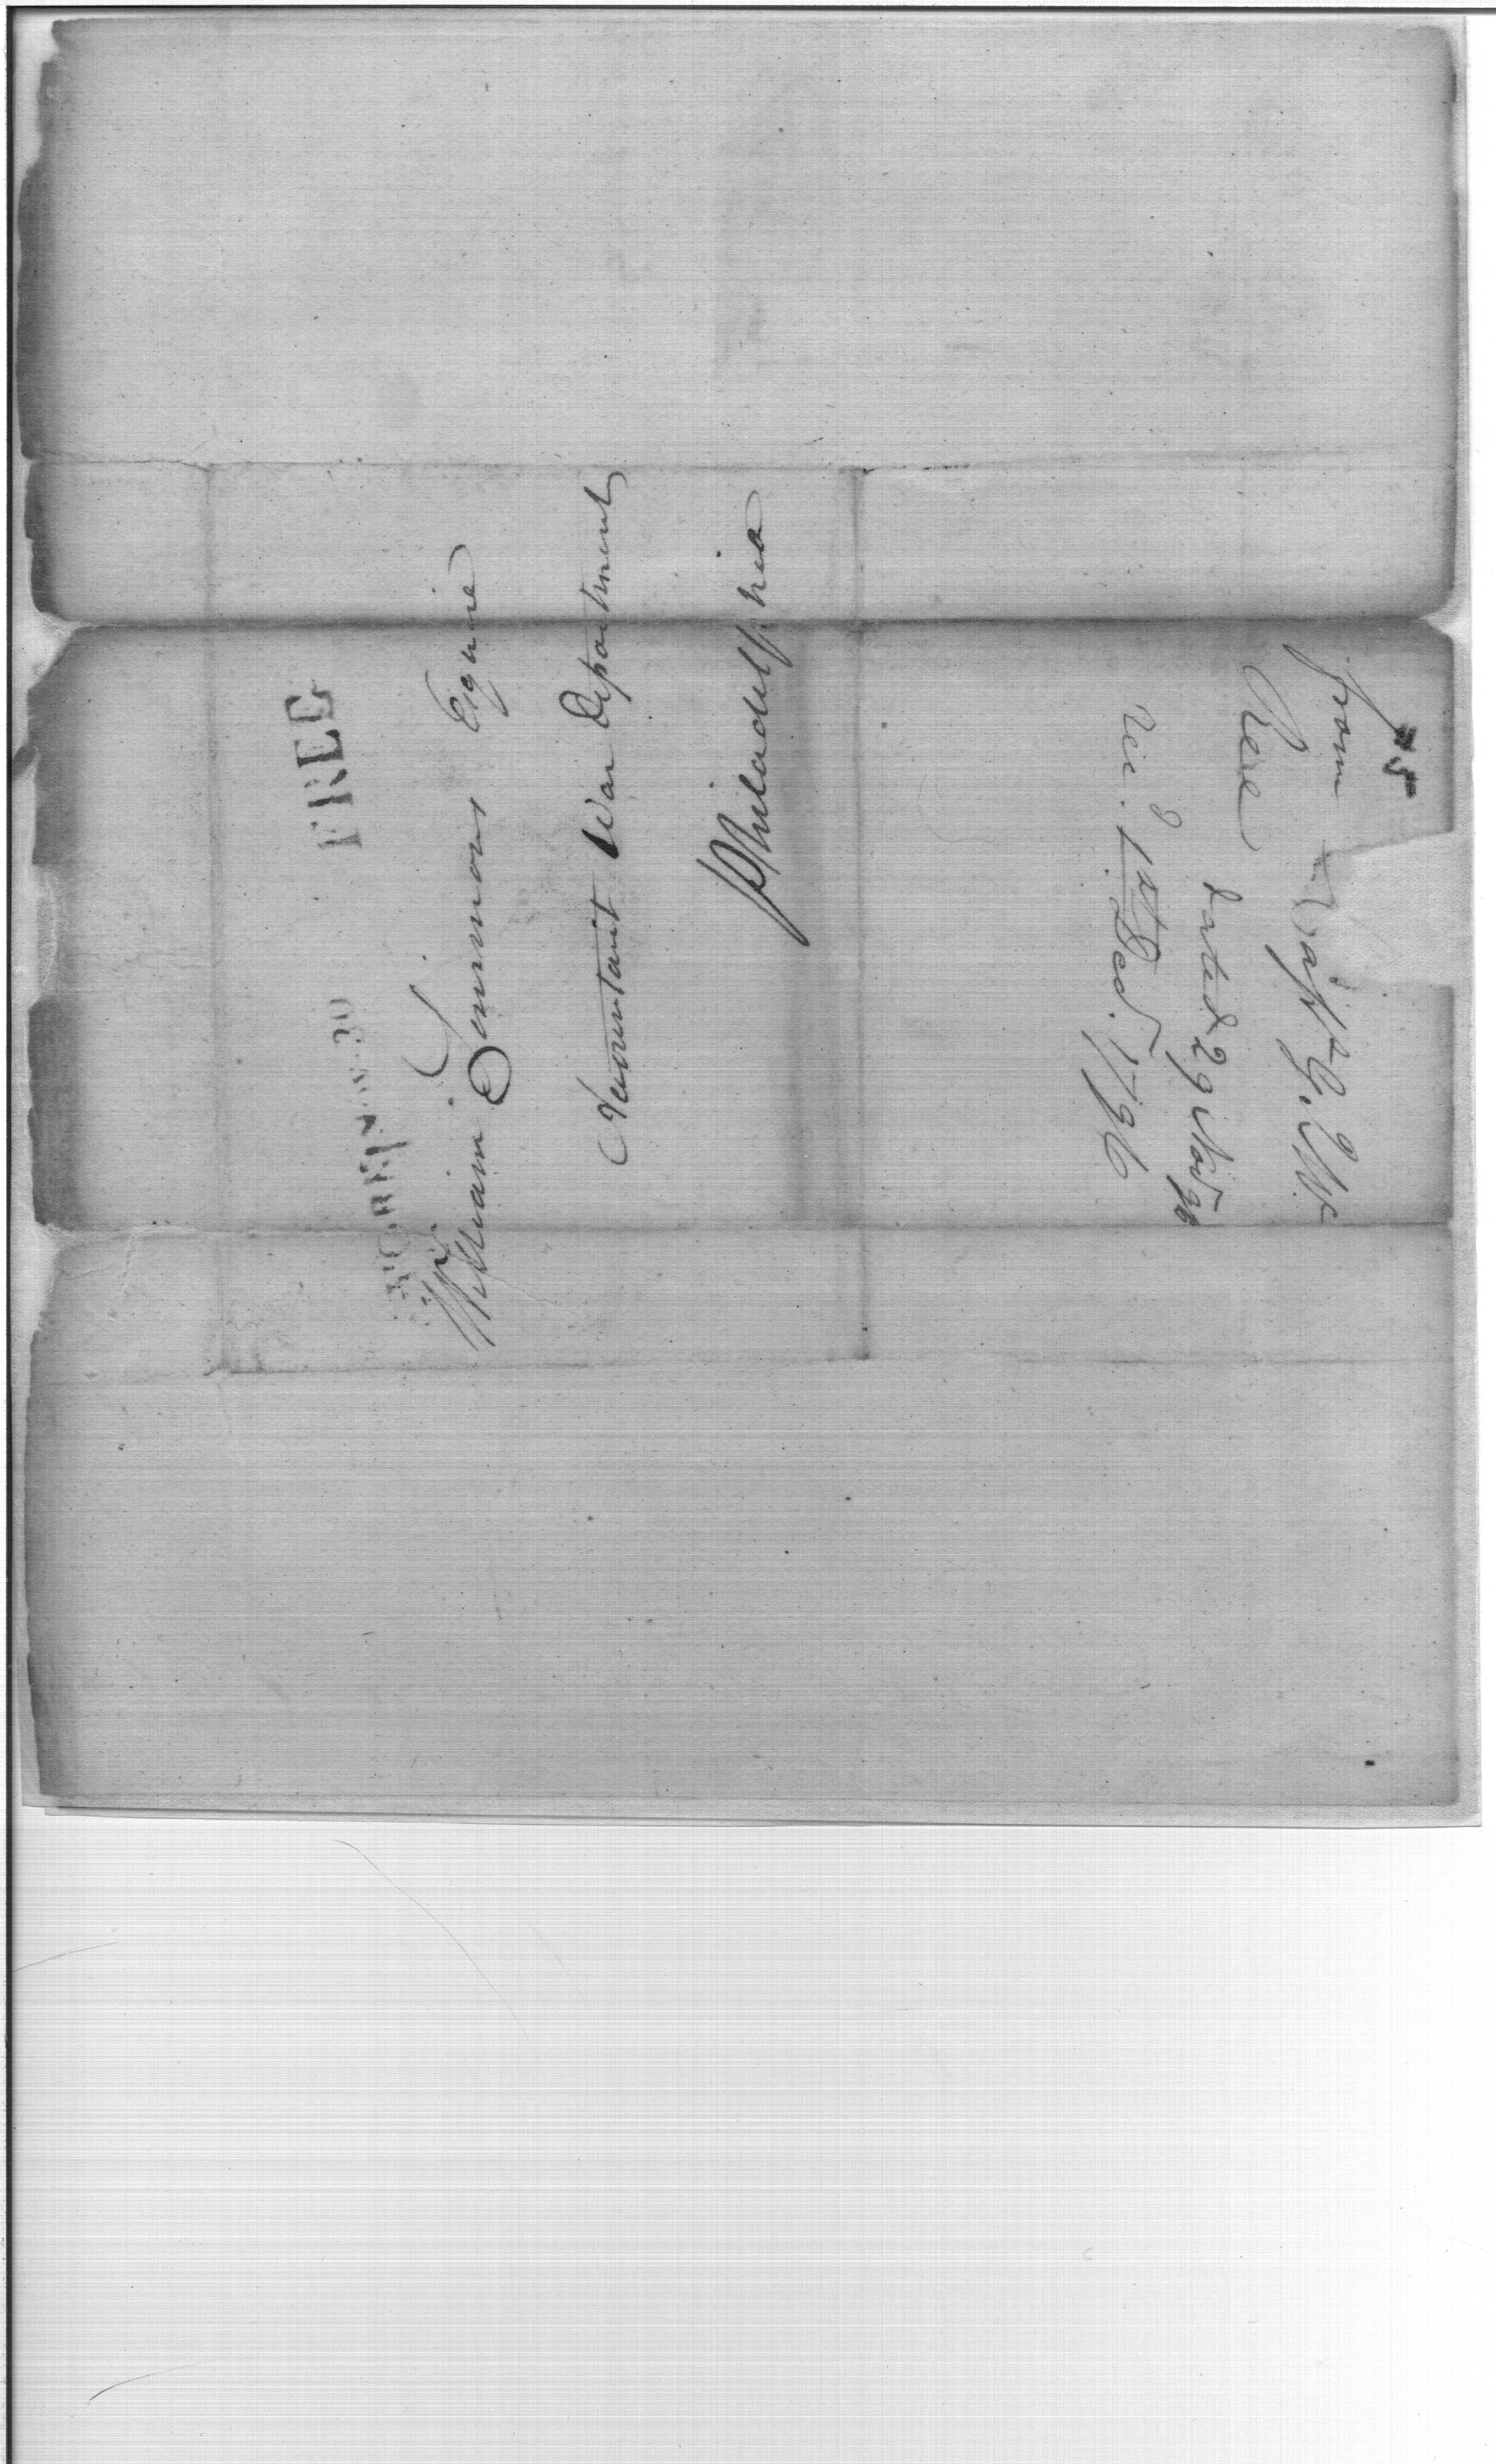 FREE
William Simmons Esquire
Accountant War Department
Philadelphia
from Capt. G. W.
dated 29 Nov. 96
Rec.d 1st Dec.r 1796